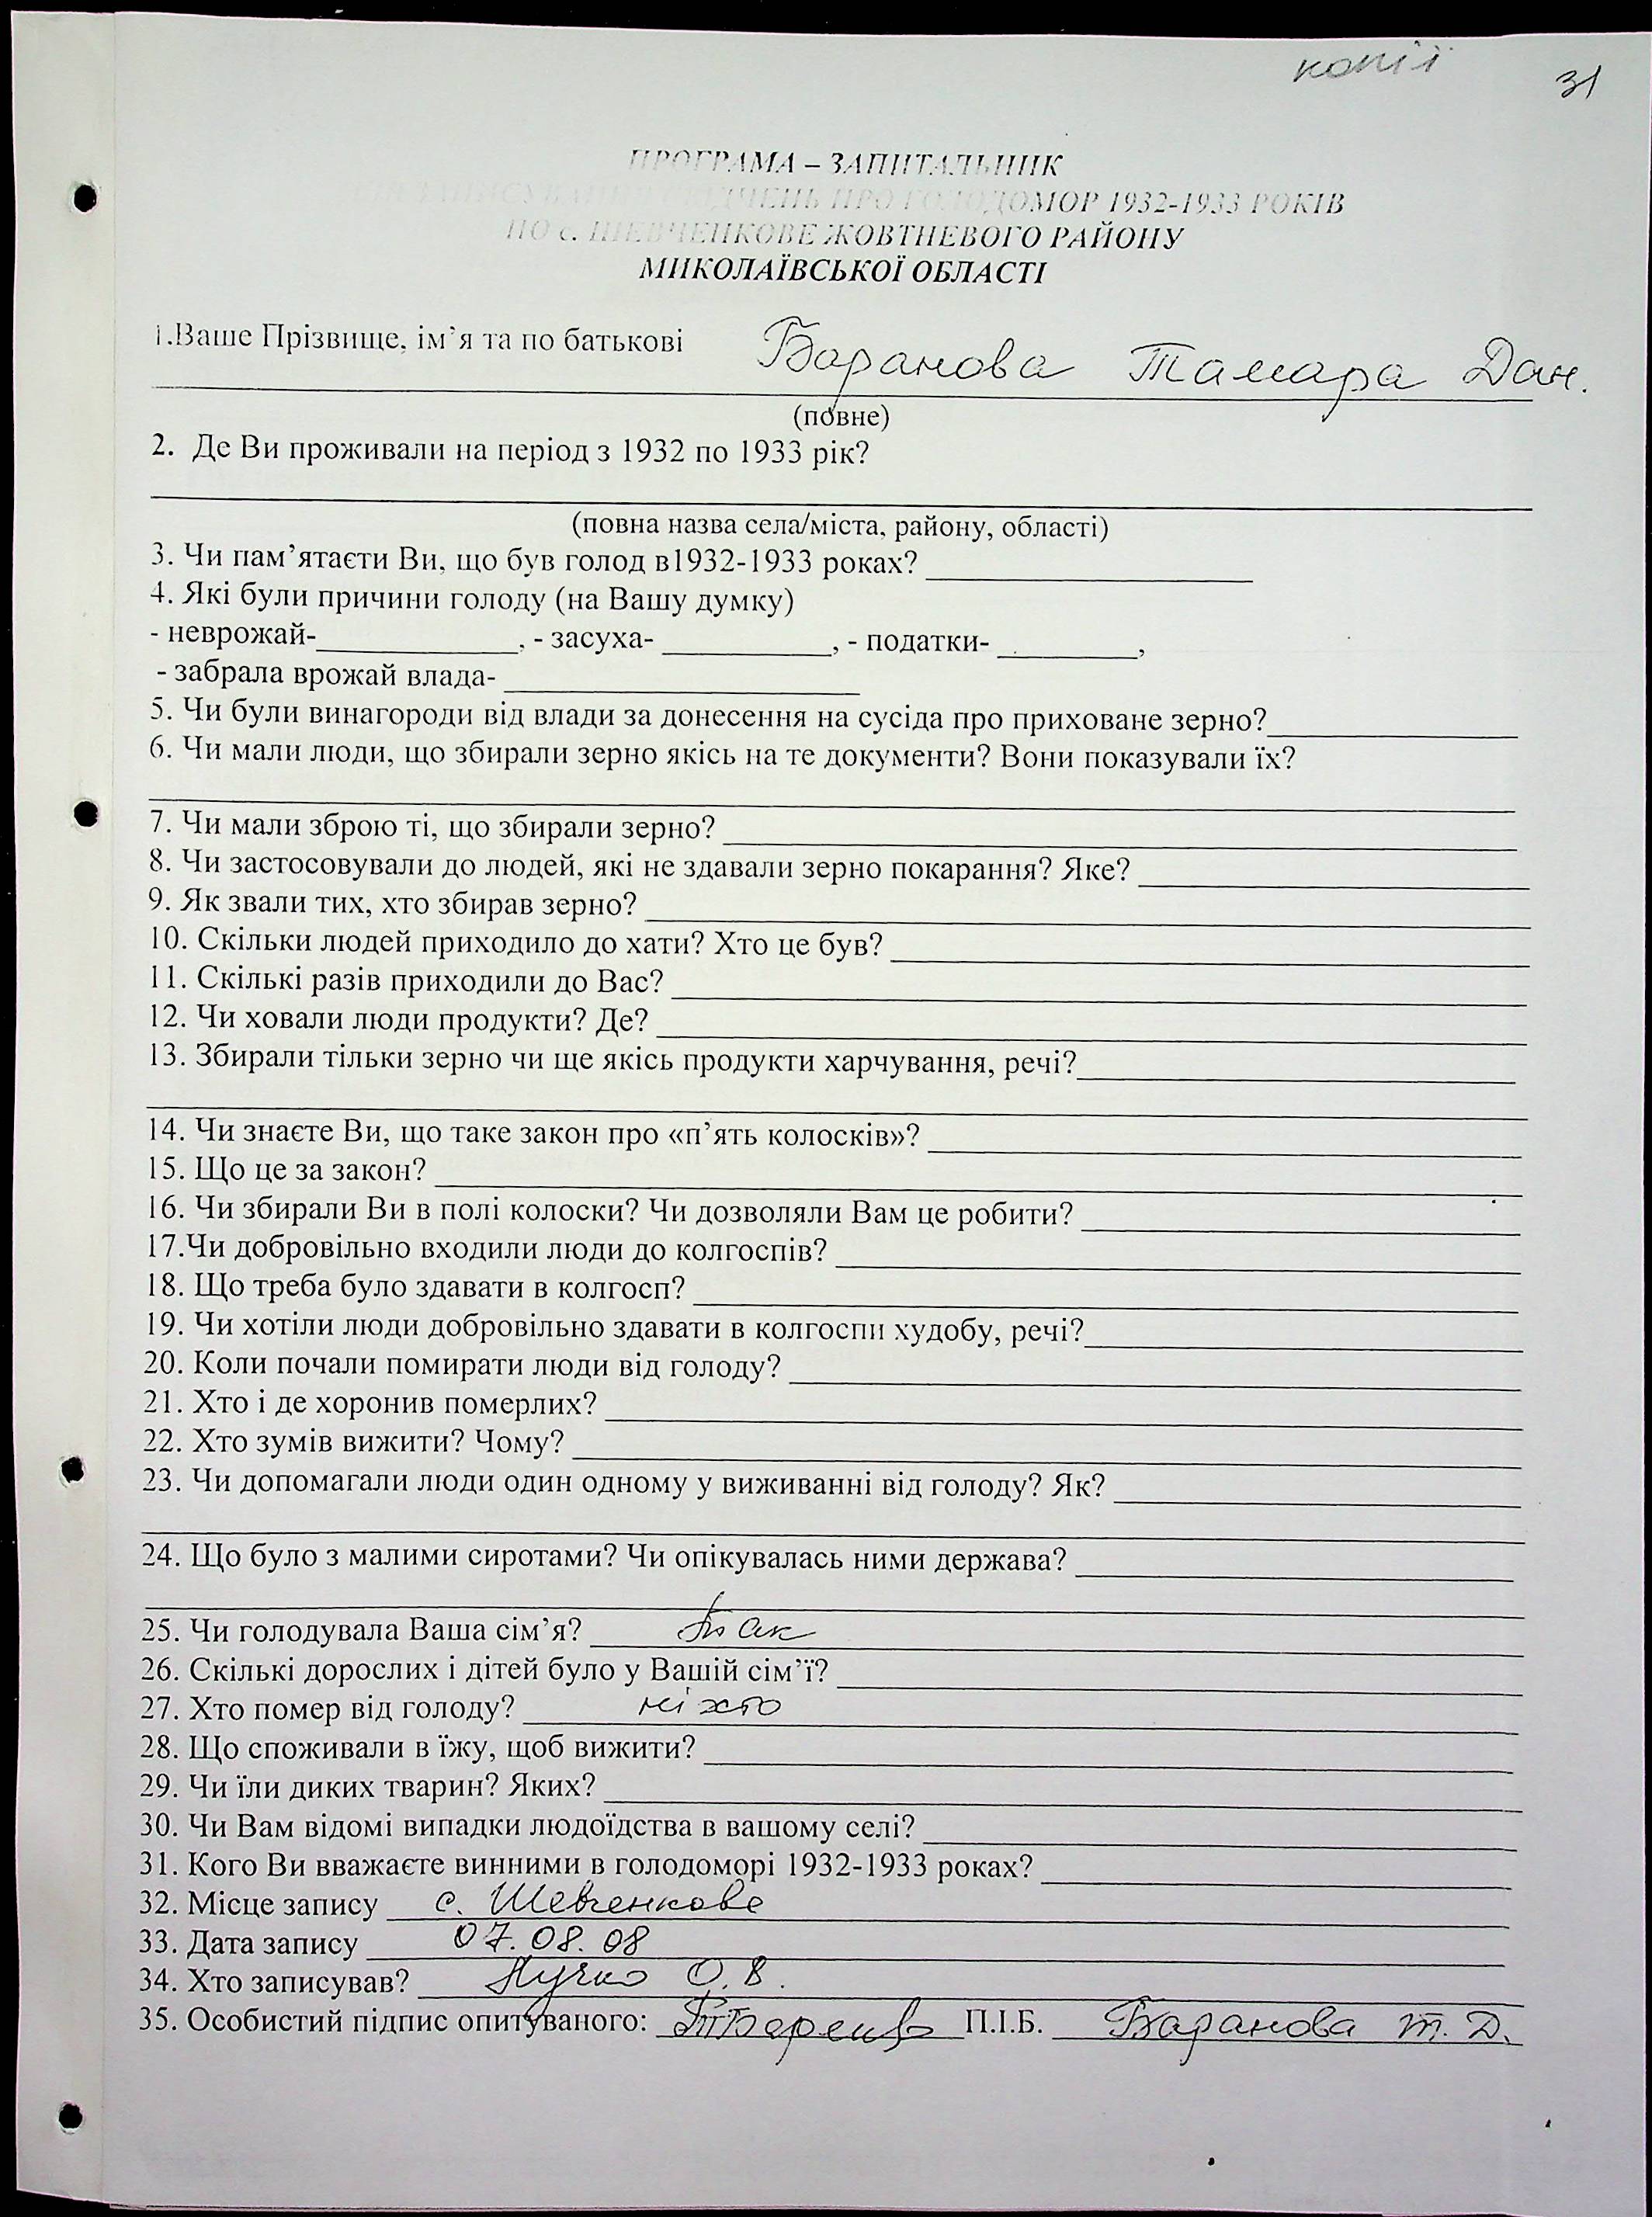 копії 31
ПРОГРАМА – ЗАПИТАЛЬНИК
ПРО ГОЛОДОМОР 1932-1933 РОКІВ
ПО с. ШЕВЧЕНКОВЕ ЖОВТНЕВОГО РАЙОНУ
МИКОЛАЇВСЬКОЇ ОБЛАСТІ
1.Ваше Прізвище, ім’я та по батькові Баранова Тамара Дан.
(повне)
2. Де Ви проживали на період з 1932 по 1933 рік?
(повна назва села/міста, району, області)
3. Чи пам’ятаєти Ви, що був голод в1932-1933 роках?
4. Які були причини голоду (на Вашу думку)
- неврожай- , - засуха- , - податки- ,
- забрала врожай влада-
5. Чи були винагороди від влади за донесення на сусіда про приховане зерно?
6. Чи мали люди, що збирали зерно якісь на те документи? Вони показували їх?
7. Чи мали зброю ті, що збирали зерно?
8. Чи застосовували до людей, які не здавали зерно покарання? Яке?
9. Як звали тих, хто збирав зерно?
10. Скільки людей приходило до хати? Хто це був?
11. Скількі разів приходили до Вас?
12. Чи ховали люди продукти? Де?
13. Збирали тільки зерно чи ще якісь продукти харчування, речі?
14. Чи знаєте Ви, що таке закон про «п’ять колосків»?
15. Що це за закон?
16. Чи збирали Ви в полі колоски? Чи дозволяли Вам це робити?
17.Чи добровільно входили люди до колгоспів?
18. Що треба було здавати в колгосп?
19. Чи хотіли люди добровільно здавати в колгоспи худобу, речі?
20. Коли почали помирати люди від голоду?
21. Хто і де хоронив померлих?
22. Хто зумів вижити? Чому?
23. Чи допомагали люди один одному у виживанні від голоду? Як?
24. Що було з малими сиротами? Чи опікувалась ними держава?
25. Чи голодувала Ваша сім’я? так
26. Скількі дорослих і дітей було у Вашій сім’ї?
27. Хто помер від голоду? ніхто
28. Що споживали в їжу, щоб вижити?
29. Чи їли диких тварин? Яких?
30. Чи Вам відомі випадки людоїдства в вашому селі?
31. Кого Ви вважаєте винними в голодоморі 1932-1933 роках?
32. Місце запису с. Шевченкове
33. Дата запису 07.08.08
34. Хто записував? О.В.
35. Особистий підпис опитуваного: П.І.Б. Баранова Т. Д.